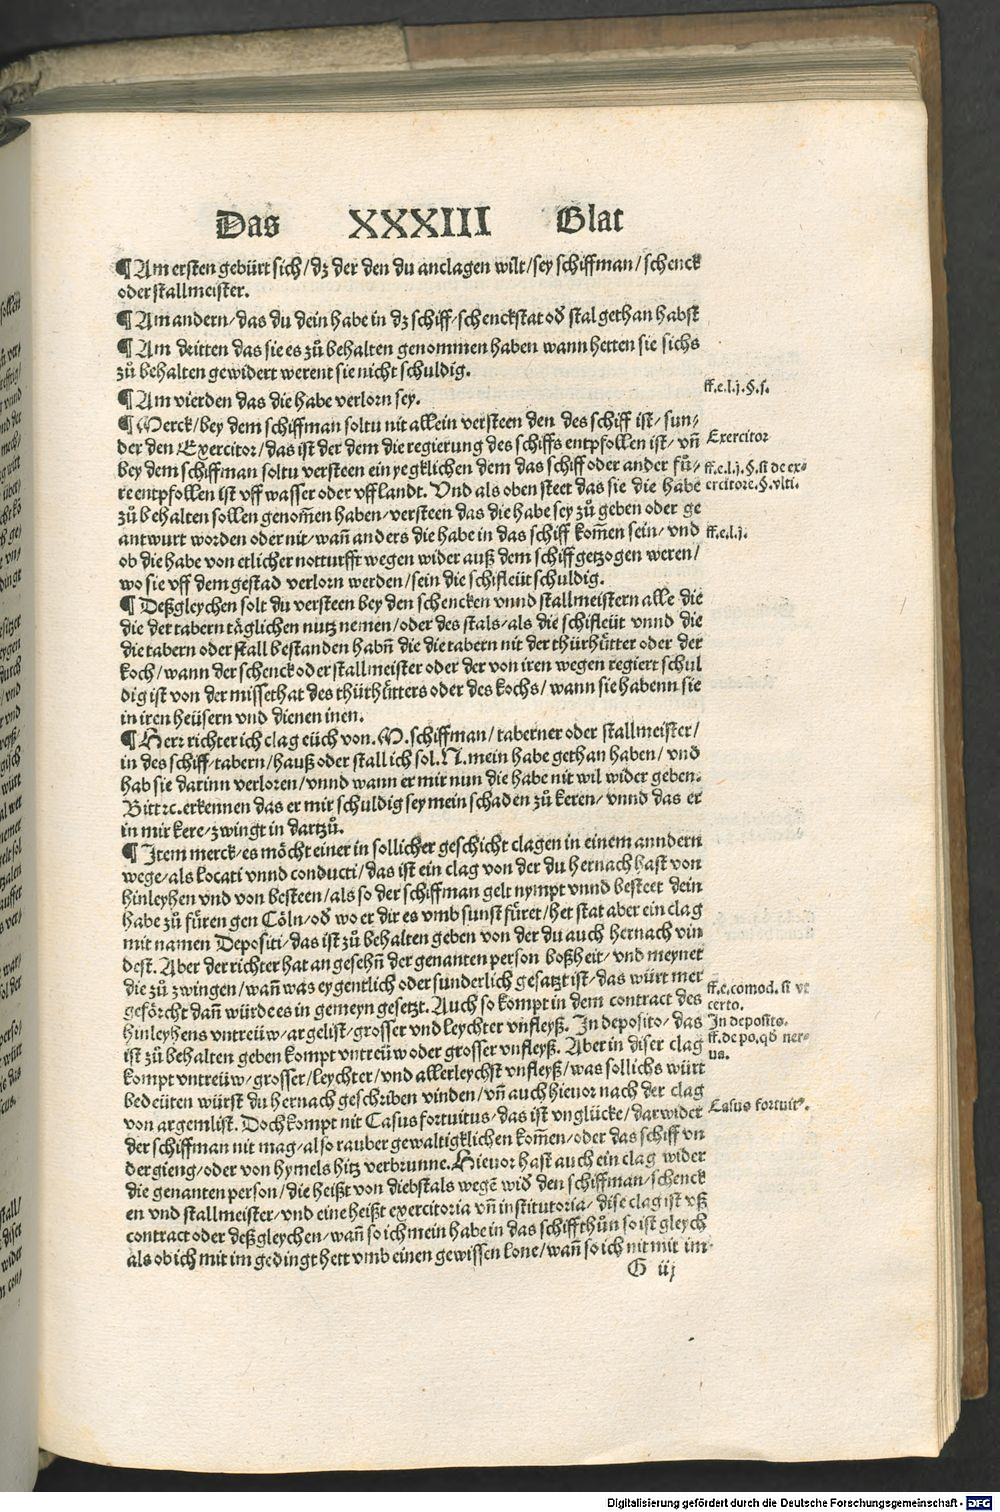 Das XXXIII Glat
¶ Am ersten gebürt sich/dz der den du anclagen wilt/sey schiffman/schenck
oder stallmeister.
¶ Am andern/das du dein habe in dz schiff/schenckstat od̕ stal gethan habst
¶ Am dritten das sie es zů behalten genommen haben wann hetten sie sichs
zů behalten gewidert werent sie nicht schuldig.
ff.e.l.j.§.s.
¶ Am vierden das die habe verlorn sey.
¶ Merck/bey dem schiffman soltu nit allein versteen den des schiff ist/sun/
der den Exercitor/das ist der dem die regierung des schiffs entpfollen ist/vn̄
Exercitor
bey dem schiffman soltu versteen ein yegklichen dem das schiff oder ander fů/
ff.e.l.j.§.si de ex/
re entpfollen ist vff wasser oder vff landt. Vnd als oben steet das sie die habe
ercitore.§.vlti.
zů behalten sollen genom̄en haben/versteen das die habe sey zů geben oder ge
antwurt worden oder nit/wan̄ anders die habe in das schiff kom̄en sein/vnd
ff.e.l.j.
ob die habe von etlicher notturfft wegen wider auß dem schiff getzogen weren/
wo sie vff dem gestad verlorn werden/sein die schifleüt schuldig.
¶ Deßgleychen solt du versteen bey den schencken vnnd stallmeistern alle die
die der tabern täglichen nutz nemen/oder des stals/als die schifleüt vnnd die
die tabern oder stall bestanden habn̄ die die tabern nit der thürhütter oder der
koch/wann der schenck oder stallmeister oder der von iren wegen regiert schul
dig ist von der missethat des thürhütters oder des kochs/wann sie habenn sie
in iren heüsern vnd dienen inen.
¶ Herr richter ich clag eüch von. M. schiffman/taberner oder stallmeister/
in des schiff/tabern/hauß oder stall ich sol. N. mein habe gethan haben/vnd
hab sie darinn verloren/vnnd wann er mir nun die habe nit wil wider geben.
Bitt ꝛc. erkennen das er mir schuldig sey mein schaden zů keren/vnnd das er
in mir kere/zwingt in dartzů.
¶ Item merck/es möcht einer in sollicher geschicht clagen in einem anndern
wege/als locati vnnd conducti/das ist ein clag von der du hernach hast von
hinleyhen vnd von besteen/als so der schiffman gelt nympt vnnd besteet dein
habe zů füren gen Cöln/od̕ wo er dir es vmb sunst füret/het stat aber ein clag
mit namen Depositi/das ist zů behalten geben von der du auch hernach vin
dest. Aber der richter hat angesehn̄ der genanten person boßheit/vnd meynet
die zů zwingen/wan̄ was eygentlich oder sunderlich gesatzt ist/das würt mer
ff.e.comod. si vt
geförcht dan̄ würde es in gemeyn gesetzt. Auch so kompt in dem contract des
certo.
hinleyhens vntreüw/argelist/grosser vnd leychter vnfleyß. In deposito/das
In deposito.
ist zů behalten geben kompt vntreüw oder grosser vnfleyß. Aber in diser clag
ff.de po.qd̕ ner/
us.
kompt vntreüw/grosser/leychter/vnd allerleychst vnfleyß/was sollichs würt
bedeüten würst du hernach geschriben vinden/vn̄ auch hieuor nach der clag
von argemlist. Doch kompt nit Casus fortuitus/das ist vnglücke/darwider
Casus fortuit⁹.
der schiffman nit mag/also rauber gewaltigklichen kom̄en/oder das schiff vn
dergieng/oder von hymels hitz verbrunne. Hieuor hast auch ein clag wider
die genanten person/die heißt von diebstals wegē wid̕ den schiffman/schenck
en vnd stallmeister/vnd eine heißt exercitoria vn̄ institutoria/dise clag ist vß
contract oder deßgleychen/wan̄ so ich mein habe in das schiff thůn so ist gleych
als ob ich mit im gedingt hett vmb einen gewissen lone/wan̄ so ich nit mit im
G iij
Digitalisierung gefördert durch die Deutsche Forschungsgemeinschaft - DFG